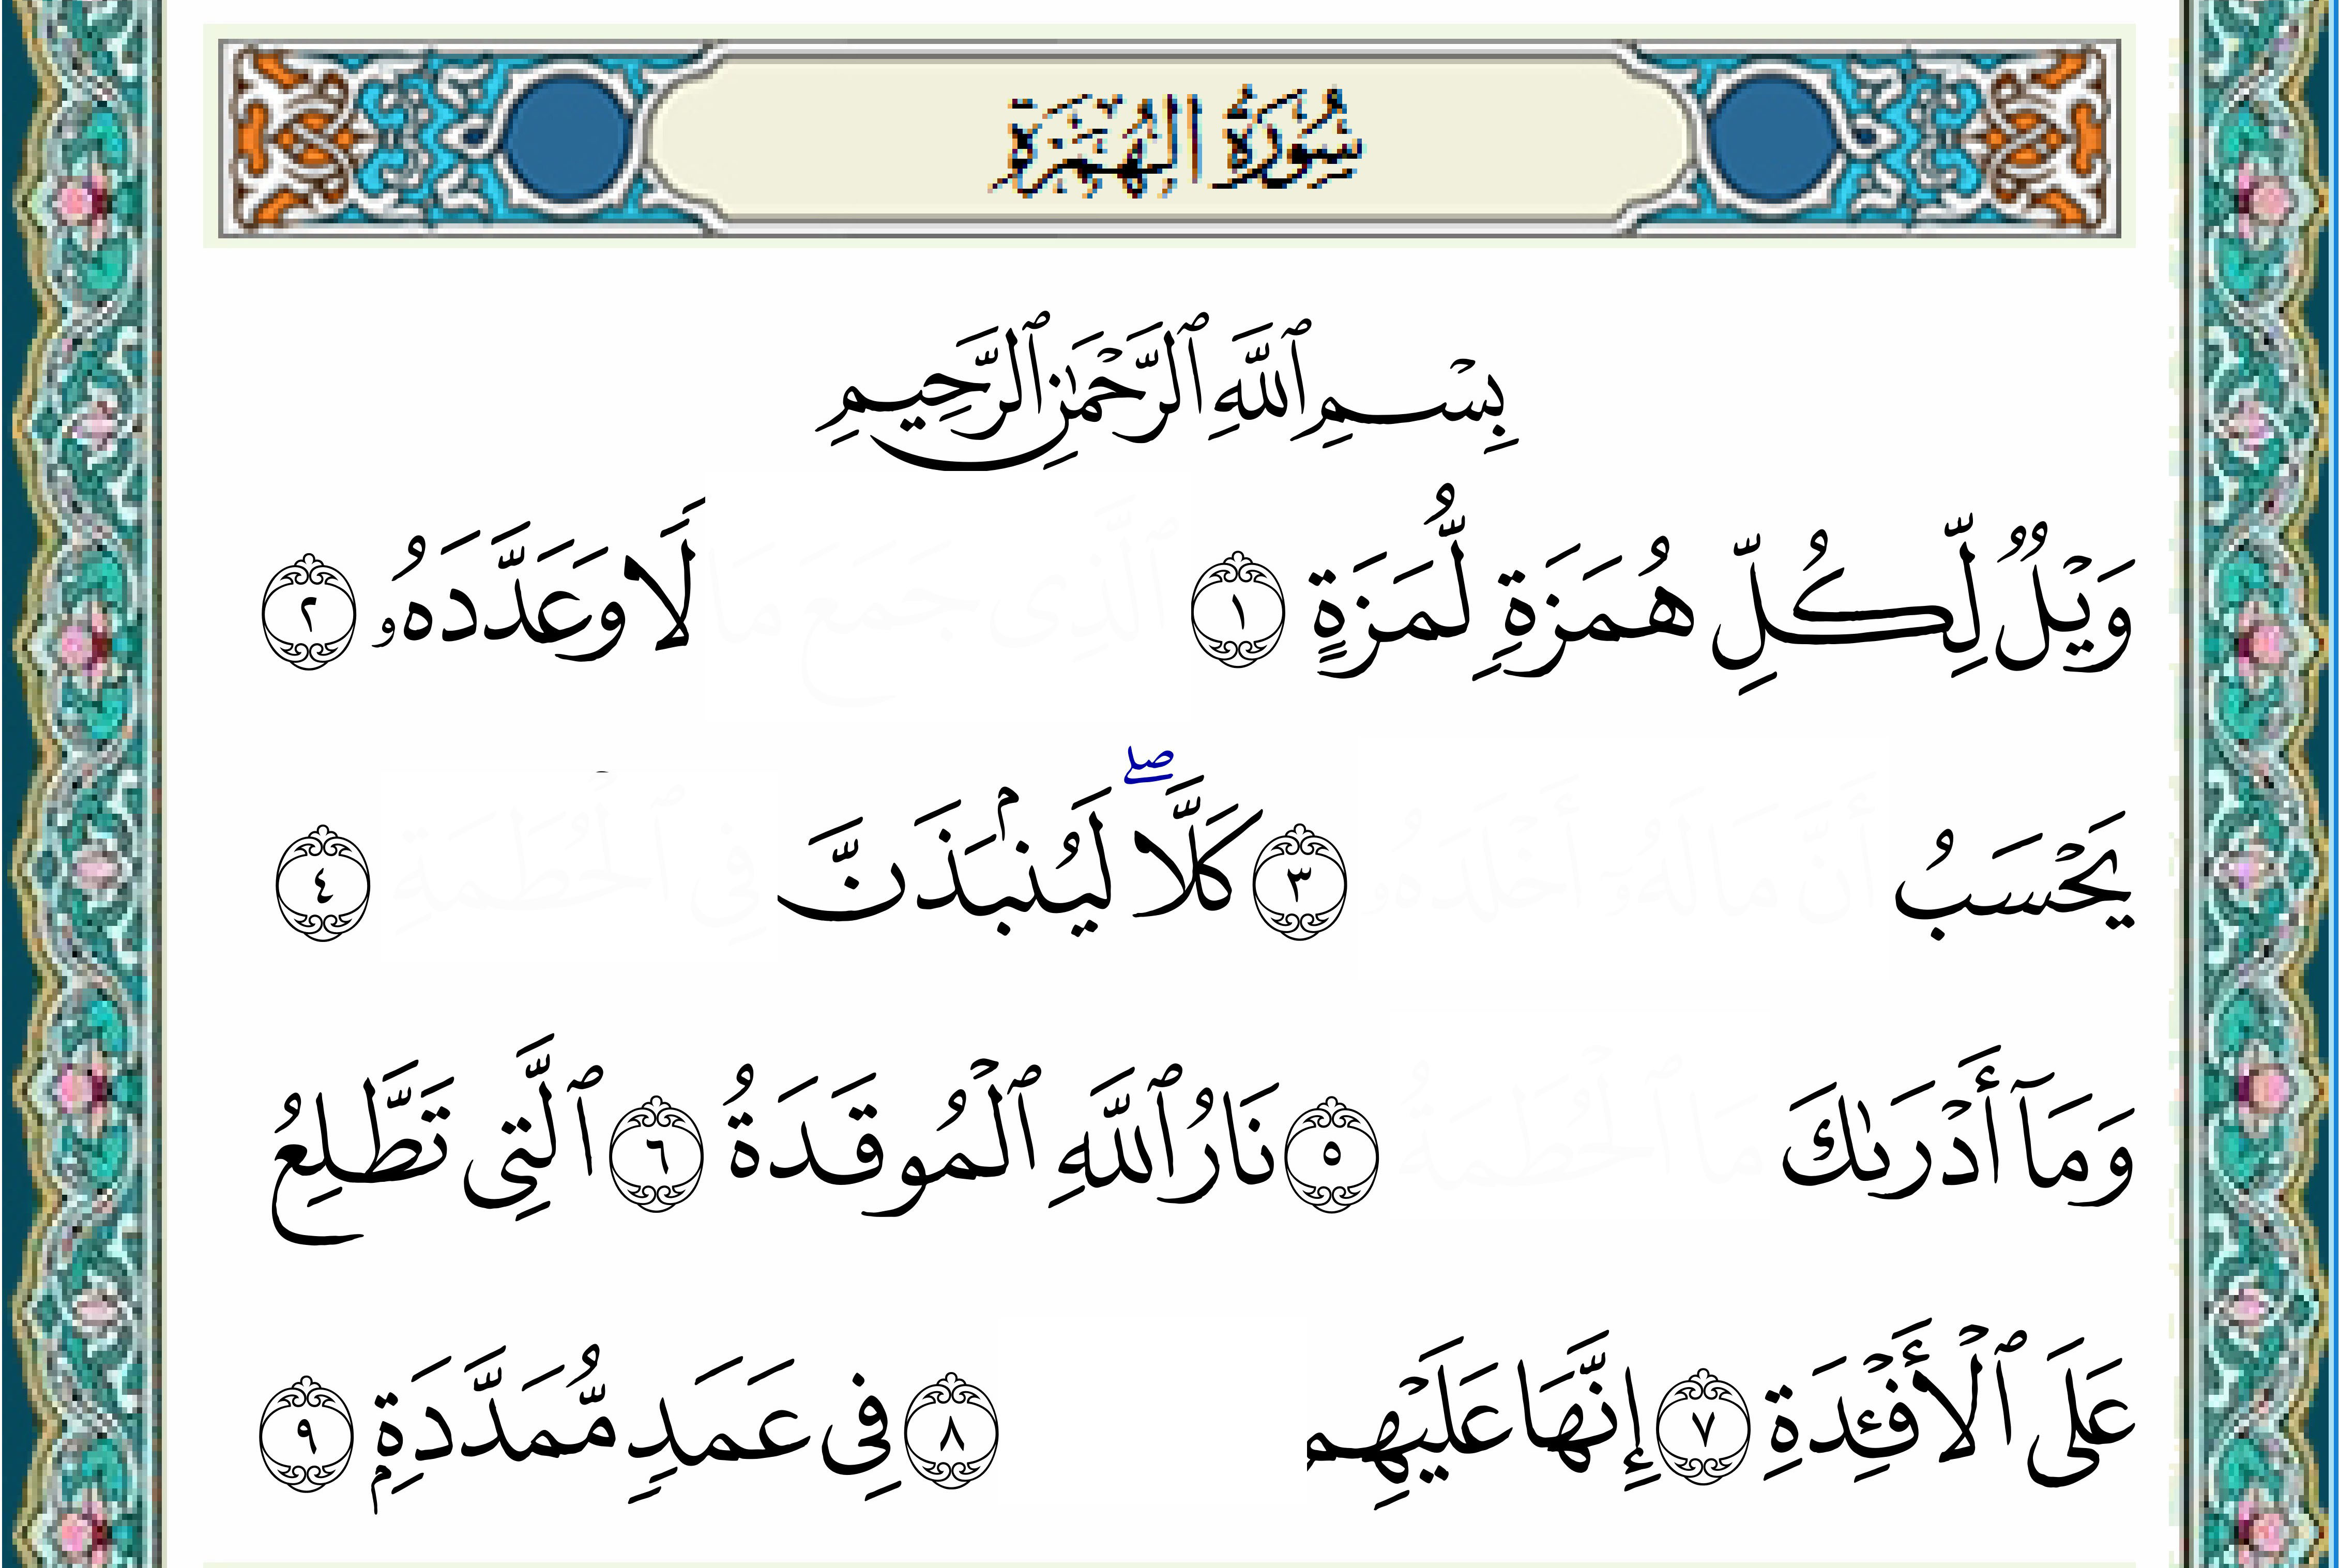 سُورَةُ الهُمَزَةِ
بِسْمِ ٱللَّهِ ٱلرَّحْمَٰنِ ٱلرَّحِيمِ
وَيْلٌ لِّكُلِّ هُمَزَةٍ لُّمَزَةٍ ١ لَا وَعَدَّدَهُۥ ٢
يَحْسَبُ ٣ كَلَّا ۖ لَيُنۢبَذَنَّ ٤
وَمَآ أَدْرَىٰكَ ٥ نَارُ ٱللَّهِ ٱلْمُوقَدَةُ ٦ ٱلَّتِى تَطَّلِعُ
عَلَى ٱلْأَفْـِٔدَةِ ٧ إِنَّهَا عَلَيْهِم ٨ فِى عَمَدٍ مُّمَدَّدَةٍۭ ٩